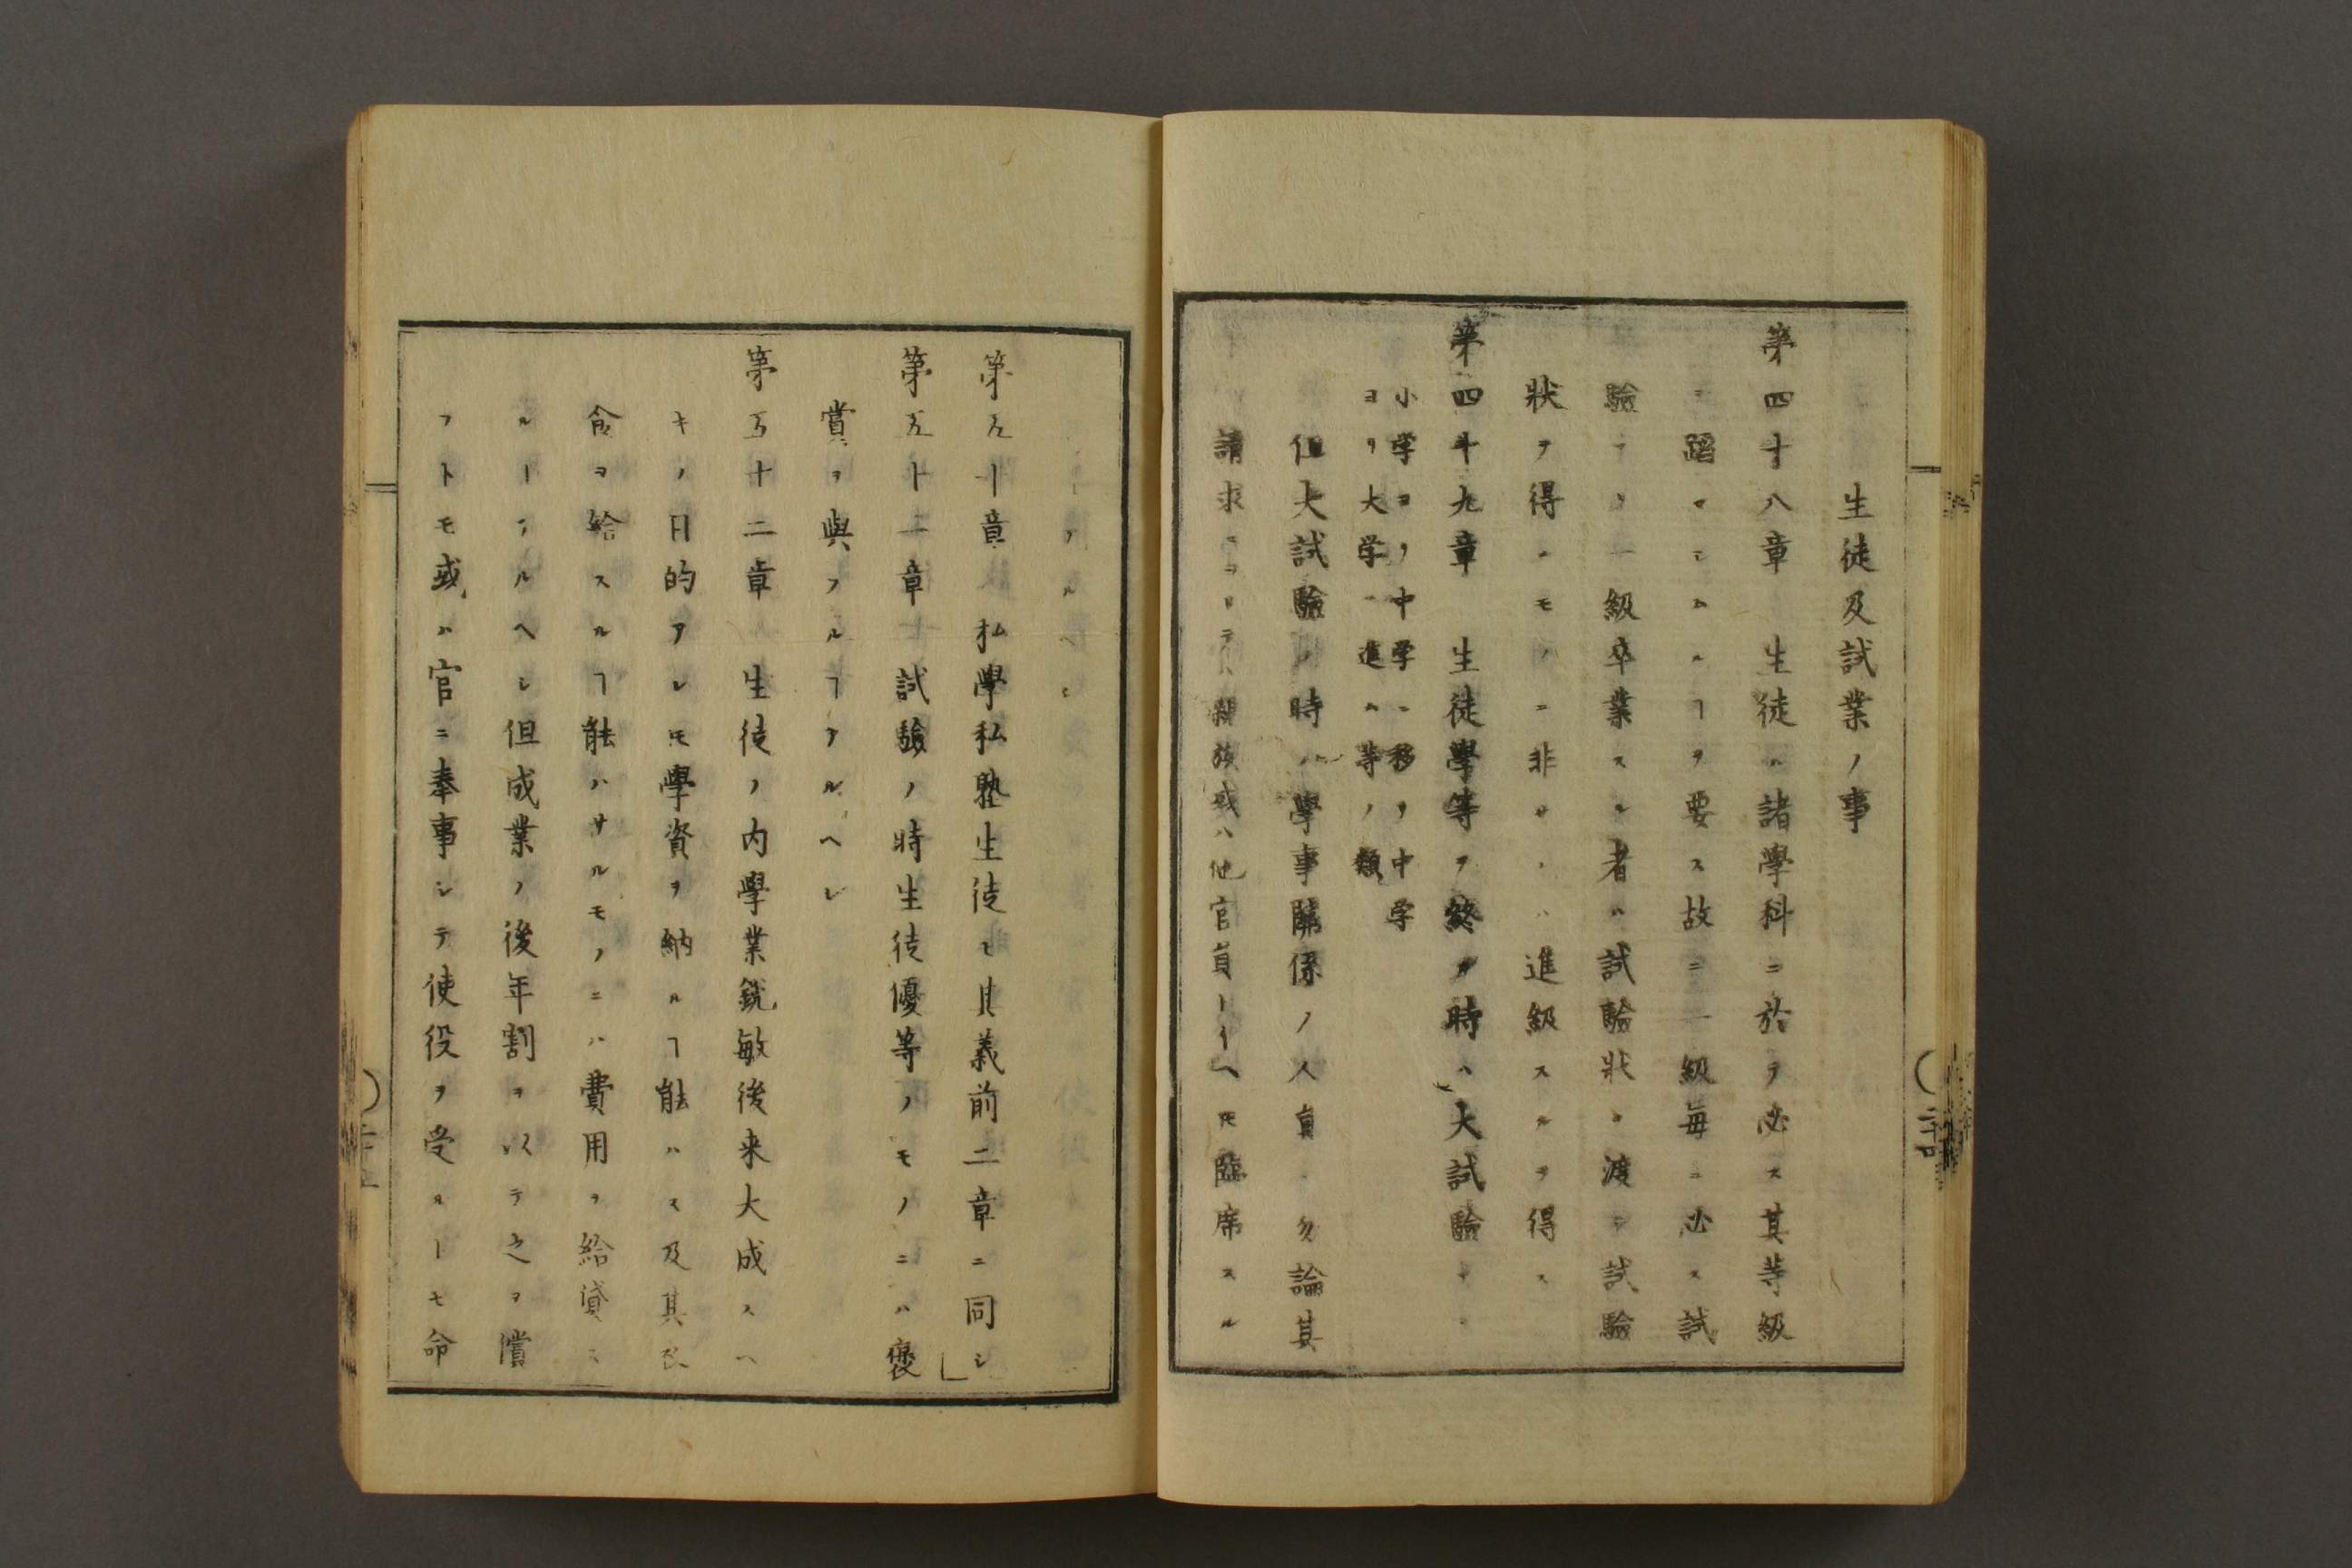 生徒及試業ノ事
第四十八章　生徒ハ諸學科ニ於テ必ス其等級
ニ踏マシムルヿヲ要ス故ニ一級毎ニ必ス試
驗アリ一級卒業スル者ハ試驗狀ヲ渡シ試驗
狀ヲ得ルモノニ非サレハ進級スルヲ得ス
第四十九章　生徒學等ヲ終ル時ハ大試驗アリ
小学ヨリ中学ニ移リ中学
ヨリ大学ニ進ム等ノ類
但大試驗ノ時ハ學事關係ノ人員ハ勿論其
請求ニヨリテハ親族或ハ他官員トイヘ𪜈臨席スル
ヿアルヘシ
第五十章　私學私塾生徒モ其義前二章ニ同シ
第五十一章　試驗ノ時生徒優等ノモノニハ褒
賞ヲ與フルヿアルヘシ
第五十二章　生徒ノ内學業銳敏後来大成スヘ
キノ目的アレ𪜈學資ヲ納ルヿ能ハス及其衣
食ヲ給スルヿ能ハサルモノニハ費用ヲ給貸ス
ルヿアルヘシ但成業ノ後年割ヲ以テ之ヲ償
フトモ或ハ官ニ奉事シテ使役ヲ受ルトモ命